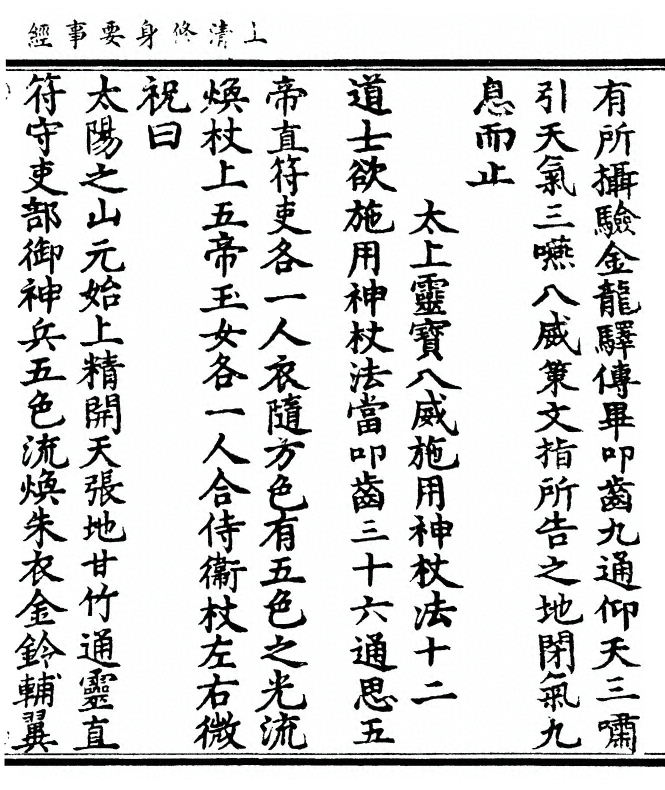 上清修身要事經
有所攝驗金龍驛傳畢叩齒九通仰天三嘯
引天氣三嚥八威策文指所告之地閉氣九
息而止
太上靈寶八威施用神杖法十二
道士欲施用神杖法當叩齒三十六通思五
帝直符吏各一人衣隨方色有五色之光流
煥杖上五帝玉女各一人合侍衞杖左右微
祝曰
太陽之山元始上精開天張地甘竹通靈直
符守吏部御神兵五色流煥朱衣金鈴輔翼